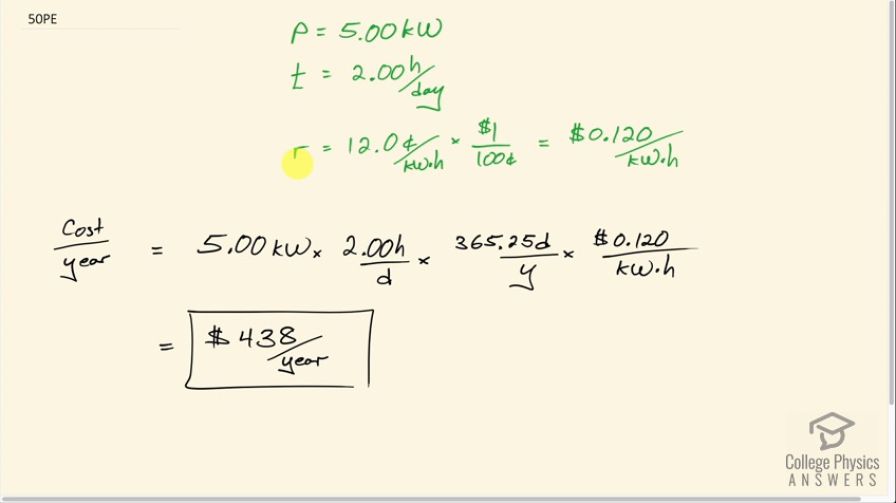 50PE
P = 5.00 kW
t = 2.00 h/day
r = 12.0 ¢/kW.h × $1/100¢ = $0.120/kW.h
Cost/year = 5.00 kW × 2.00h/d × 365.25d/y × $0.120/kW.h
= $438/year
College Physics
ANSWERS